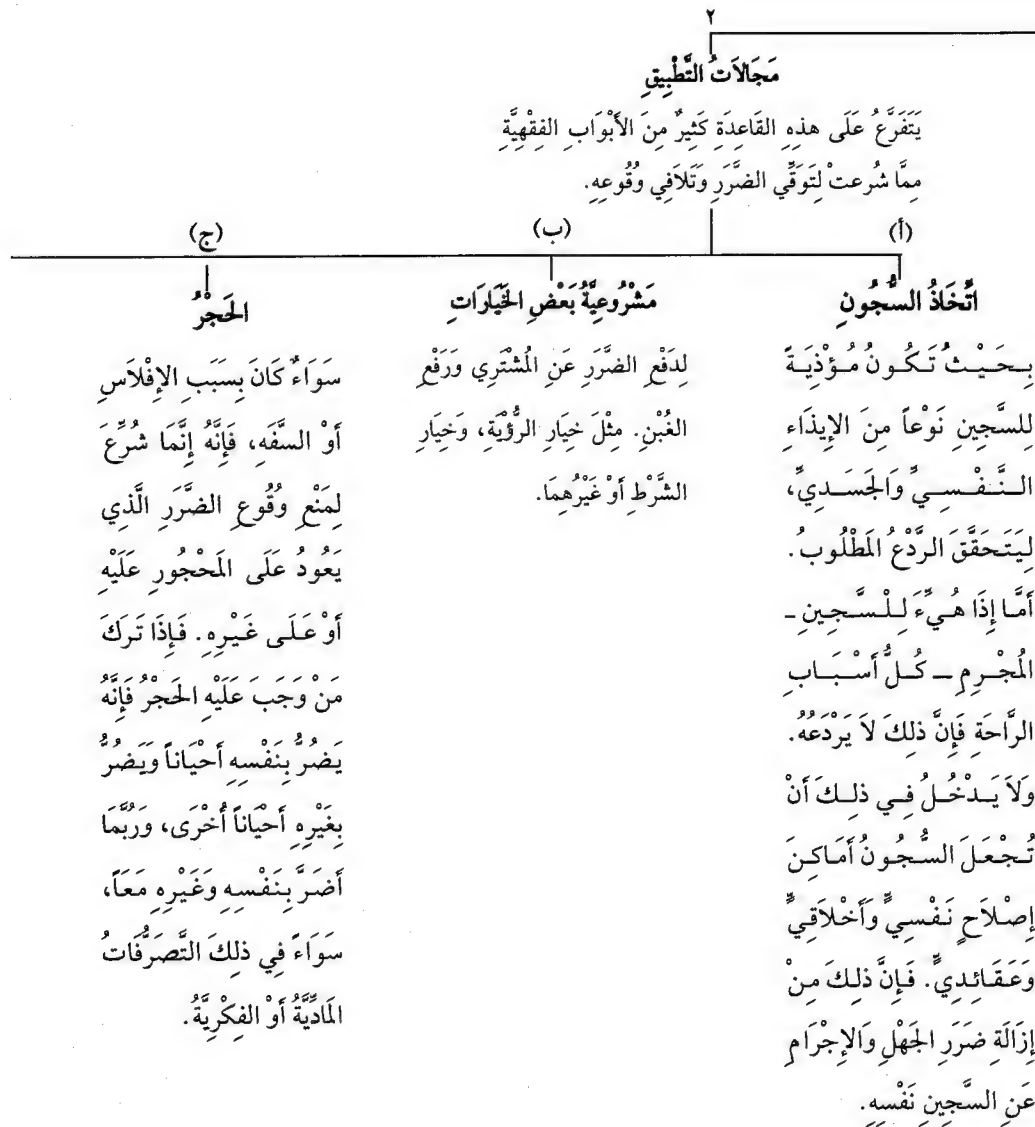 ٢
مَجَالاَتُ التَّطْبِيقِ
يَتَفَرَّعُ عَلَى هذِهِ القَاعِدَةِ كَثِيرٌ مِنَ الأَبْوَابِ الفِقْهِيَّةِ
مِمَّا شُرِعتْ لِتَوَقِّي الضَّرَرِ وَتَلاَفِي وُقُوعِهِ.
(أ)
اتِّخَاذُ السُّجُونِ
بِحَيْثُ تَكُونُ مُؤْذِيَةً
لِلسَّجِينِ نَوْعاً مِنَ الإِيذَاءِ
النَّفْسِيِّ وَالجَسَدِيِّ،
لِيَتَحَقَّقَ الرَّدْعُ المَطْلُوبُ.
أَمَّا إِذَا هُيِّءَ لِلْسَّجِينِ ـ
المُجْرِمِ ـ كُلُّ أَسْبَابِ
الرَّاحَةِ فَإِنَّ ذلِكَ لاَ يَرْدَعُهُ.
وَلاَ يَدْخُلُ فِي ذلِكَ أَنْ
تُجْعَلَ السُّجُونُ أَمَاكِنَ
إِصْلاَحٍ نَفْسِيٍّ وَأَخْلاَقِيٍّ
وَعَقَائِدِيٍّ. فَإِنَّ ذلِكَ مِنْ
إِزَالَةِ ضَرَرِ الجَهْلِ وَالإِجْرَامِ
عَنِ السَّجِينِ نَفْسِهِ.
(ب)
مَشْرُوعِيَّةُ بَعْضِ الخَيَارَاتِ
لِدَفْعِ الضَّرَرِ عَنِ المُشْتَرِي وَرَفْعِ
الغُبْنِ. مِثْلَ خِيَارِ الرُّؤْيَةِ، وَخِيَارِ
الشَّرْطِ أَوْ غَيْرُهِمَا.
(ج)
الحَجْرُ
سَوَاءٌ كَانَ بِسَبَبِ الإِفْلاَسِ
أَوْ السَّفَهِ، فَإِنَّهُ إِنَّمَا شُرِّعَ
لِمَنْعِ وُقُوعِ الضَّرَرِ الَّذِي
يَعُودُ عَلَى المَحْجُورِ عَلَيْهِ
أَوْ عَلَى غَيْرِهِ. فَإِذَا تَرَكَ
مَنْ وَجَبَ عَلَيْهِ الحَجْرُ فَإِنَّهُ
يَضُرُّ بِنَفْسِهِ أَحْيَاناً وَيَضُرُّ
بِغَيْرِهِ أَحْيَاناً أُخْرَى، وَرُبَّمَا
أَضَرَّ بِنَفْسِهِ وَغَيْرِهِ مَعَاً،
سَوَاءً فِي ذلِكَ التَّصَرُّفَاتُ
المَادِّيَّةُ أَوْ الفِكْرِيَّةُ.